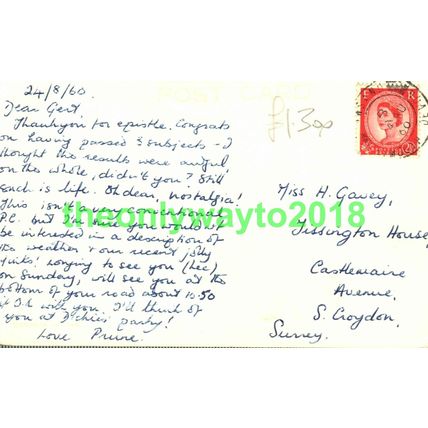 POST CARD
24/8/60
Dear Gert
Thankyou for epistle. Congrats
on having passed 5 subjects - I
thought the results were awful
on the whole, didn't you? Still
such is life. Oh dear, nostalgia!
This isn't a very conventional
P.C. but I'm sure you wouldn't
be interested in a description of
the weather & our recent jolly
longing to see you (hee)
on Sunday, will see you at the
bottom of your road about 10.50
if O.K. with you. I'll think of
you at party!
Love Prune.
£1.30
Miss H. Gavey,
Tissington House,
Castlemaine
Avenue,
S. Croydon,
Surrey.
theonlywayto2018